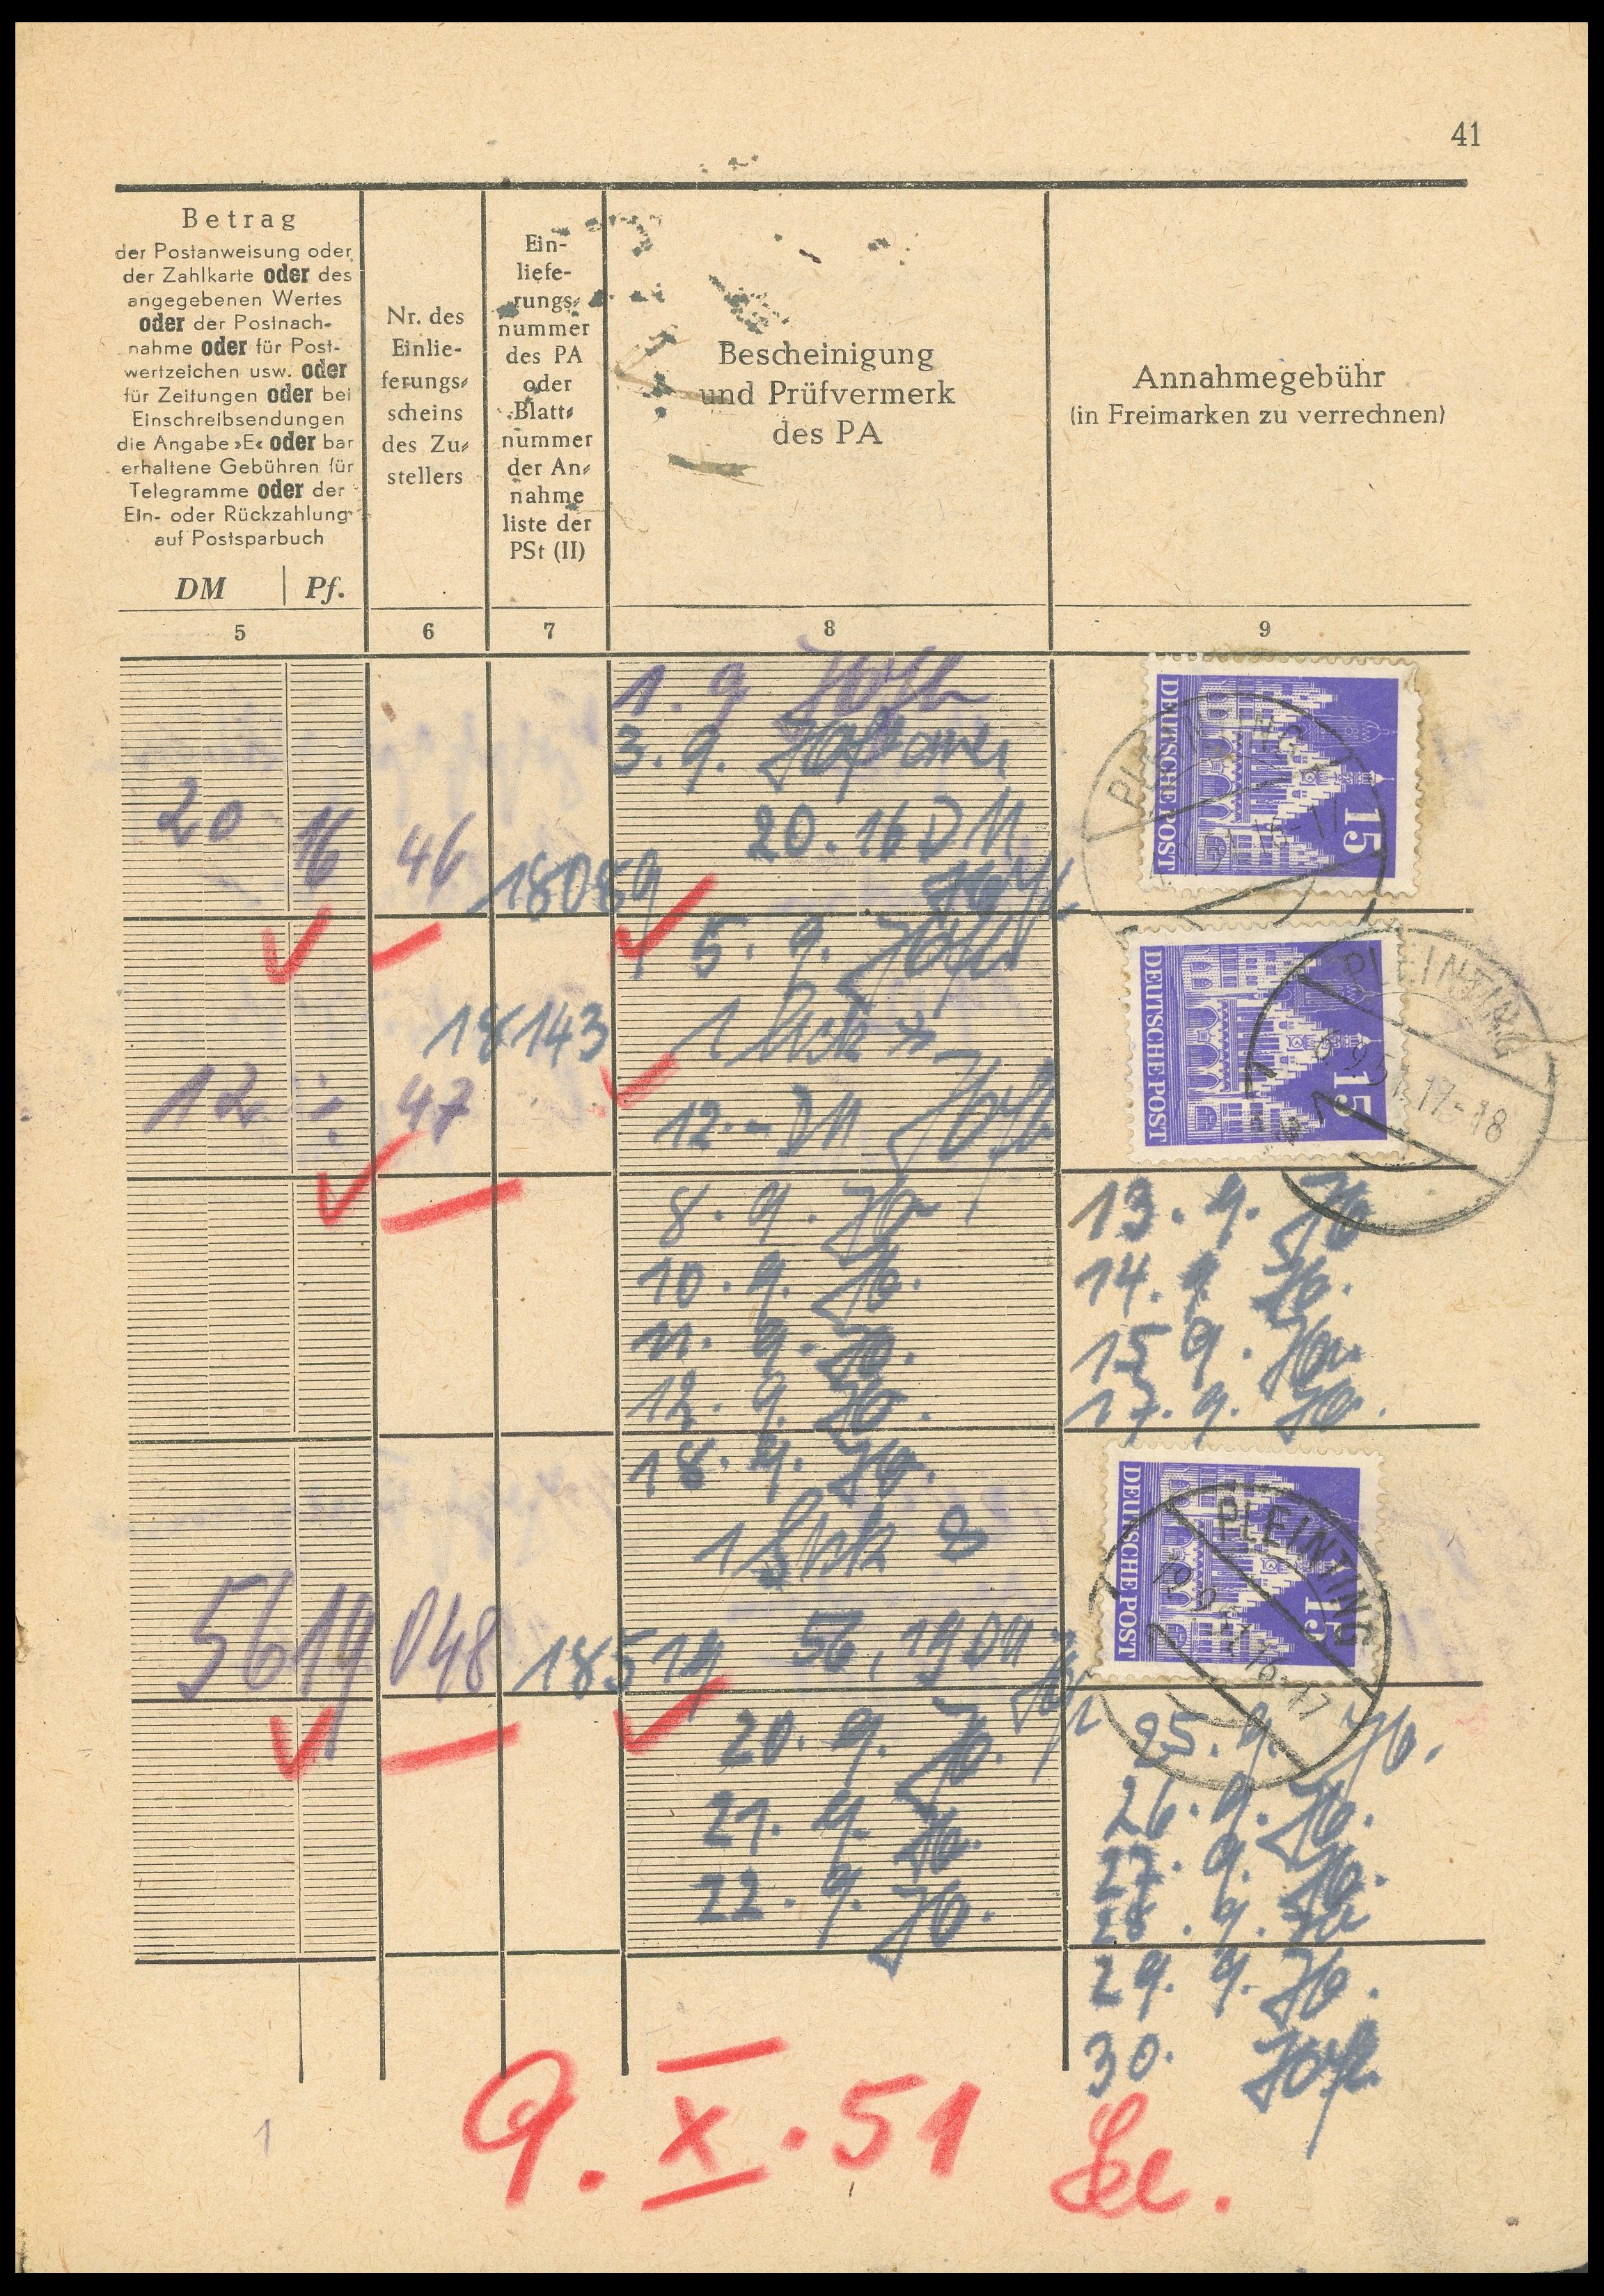 41
Betrag
der Postanweisung oder
der Zahlkarte oder des
angegebenen Wertes
oder der Postnach-
nahme oder für Post-
wertzeichen usw. oder
für Zeitungen oder bei
Einschreibsendungen
die Angabe »E« oder bar
erhaltene Gebühren für
Telegramme oder der
Ein- oder Rückzahlung
auf Postsparbuch
DM Pf.
Nr. des
Einlie-
ferungs-
scheins
des Zu-
stellers
Ein-
liefe-
rungs-
nummer
des PA
oder
Blatt-
nummer
der An-
nahme
liste der
PSt (II)
Bescheinigung
und Prüfvermerk
des PA
Annahmegebühr
(in Freimarken zu verrechnen)
5 6 7 8 9
1. 9
3. 9.
20 16 46 18089
20.16 DM
DEUTSCHE POST 15
PLEINTING
5. 9.
18143
12 47
12.- DM
DEUTSCHE POST 15
PLEINTING
6.9.51.17-18
8. 9.
10. 9.
11. 9.
12. 9.
13. 9.
14. 9.
15 9.
17. 9.
18. 9.
1 8
56 19 048 18519
56,19 DM
DEUTSCHE POST 15
PLEINTING
20. 9.
21. 9.
22. 9.
25. 9.
26. 9.
27. 9.
28. 9.
29. 9.
30.
9. X. 51
1